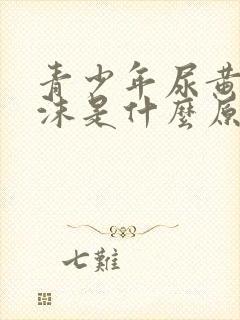 青少年尿黃
沫是什麼原
七難